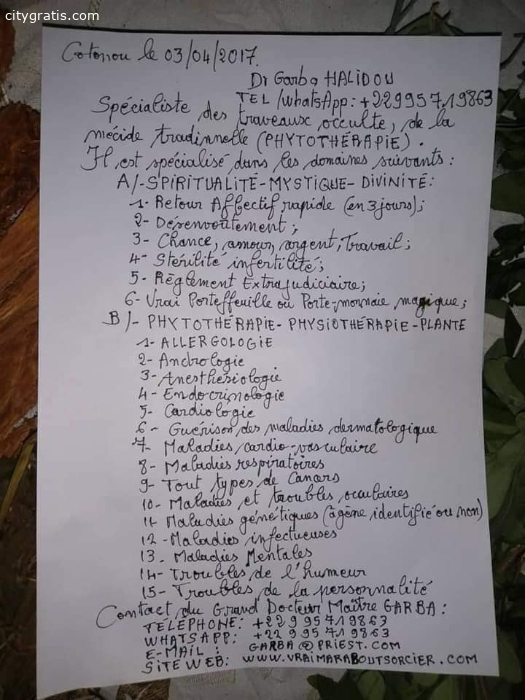 citygratis.com
Cotonou le 03/04/2017.
Dr Garba HALIDOU
TEL/WhatsApp: +22995719863
Spécialiste des traveaux occulte, de la
mécide tradinnelle (PHYTOTHÉRAPIE).
Il est spécialisé dans les domaines suivants :
A/-SPIRITUALITÉ-MYSTIQUE-DIVINITÉ:
1- Retour Affectif rapide (en 3 jours);
2- Désenvoutement;
3- Chance, amour, argent, Travail;
4- Stérilité infertilité;
5- Règlement Extrajudiciaire;
6- Vrai Porteffeuille ou Porte-monnaie magique;
B/- PHYTOTHÉRAPIE-PHYSIOTHÉRAPIE-PLANTE
1- ALLERGOLOGIE
2- Andrologie
3- Anesthésiologie
4- Endocrinologie
5- Cardiologie
6- Guérison des maladies dermatologique
7- Maladies cardio-vasculaire
8- Maladies respiratoires
9- Tout types de Cancers
10- Maladies et troubles oculaires
11- Maladies génétiques (à gène identifié ou non)
12- Maladies infectueuses
13. Maladies Mentales
14- Troubles de l'humeur
15- Troubles de la personnalité
Contact du Grand Docteur Maître GARBA :
TÉLÉPHONE: +229 95719863
WHATSAPP: +229 95719863
E-MAIL : GARBA@PRIEST.COM
SITE WEB: WWW.VRAIMARABOUTSORCIER.COM